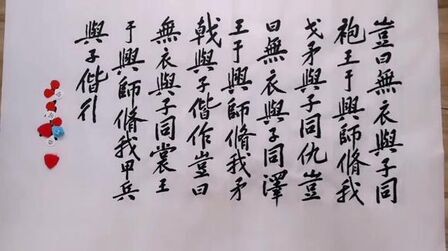 豈曰無衣與子同
袍王于興師脩我
戈矛與子同仇豈
曰無衣與子同澤
王于興師脩我矛
戟與子偕作豈曰
無衣與子同裳王
于興師脩我甲兵
與子偕行